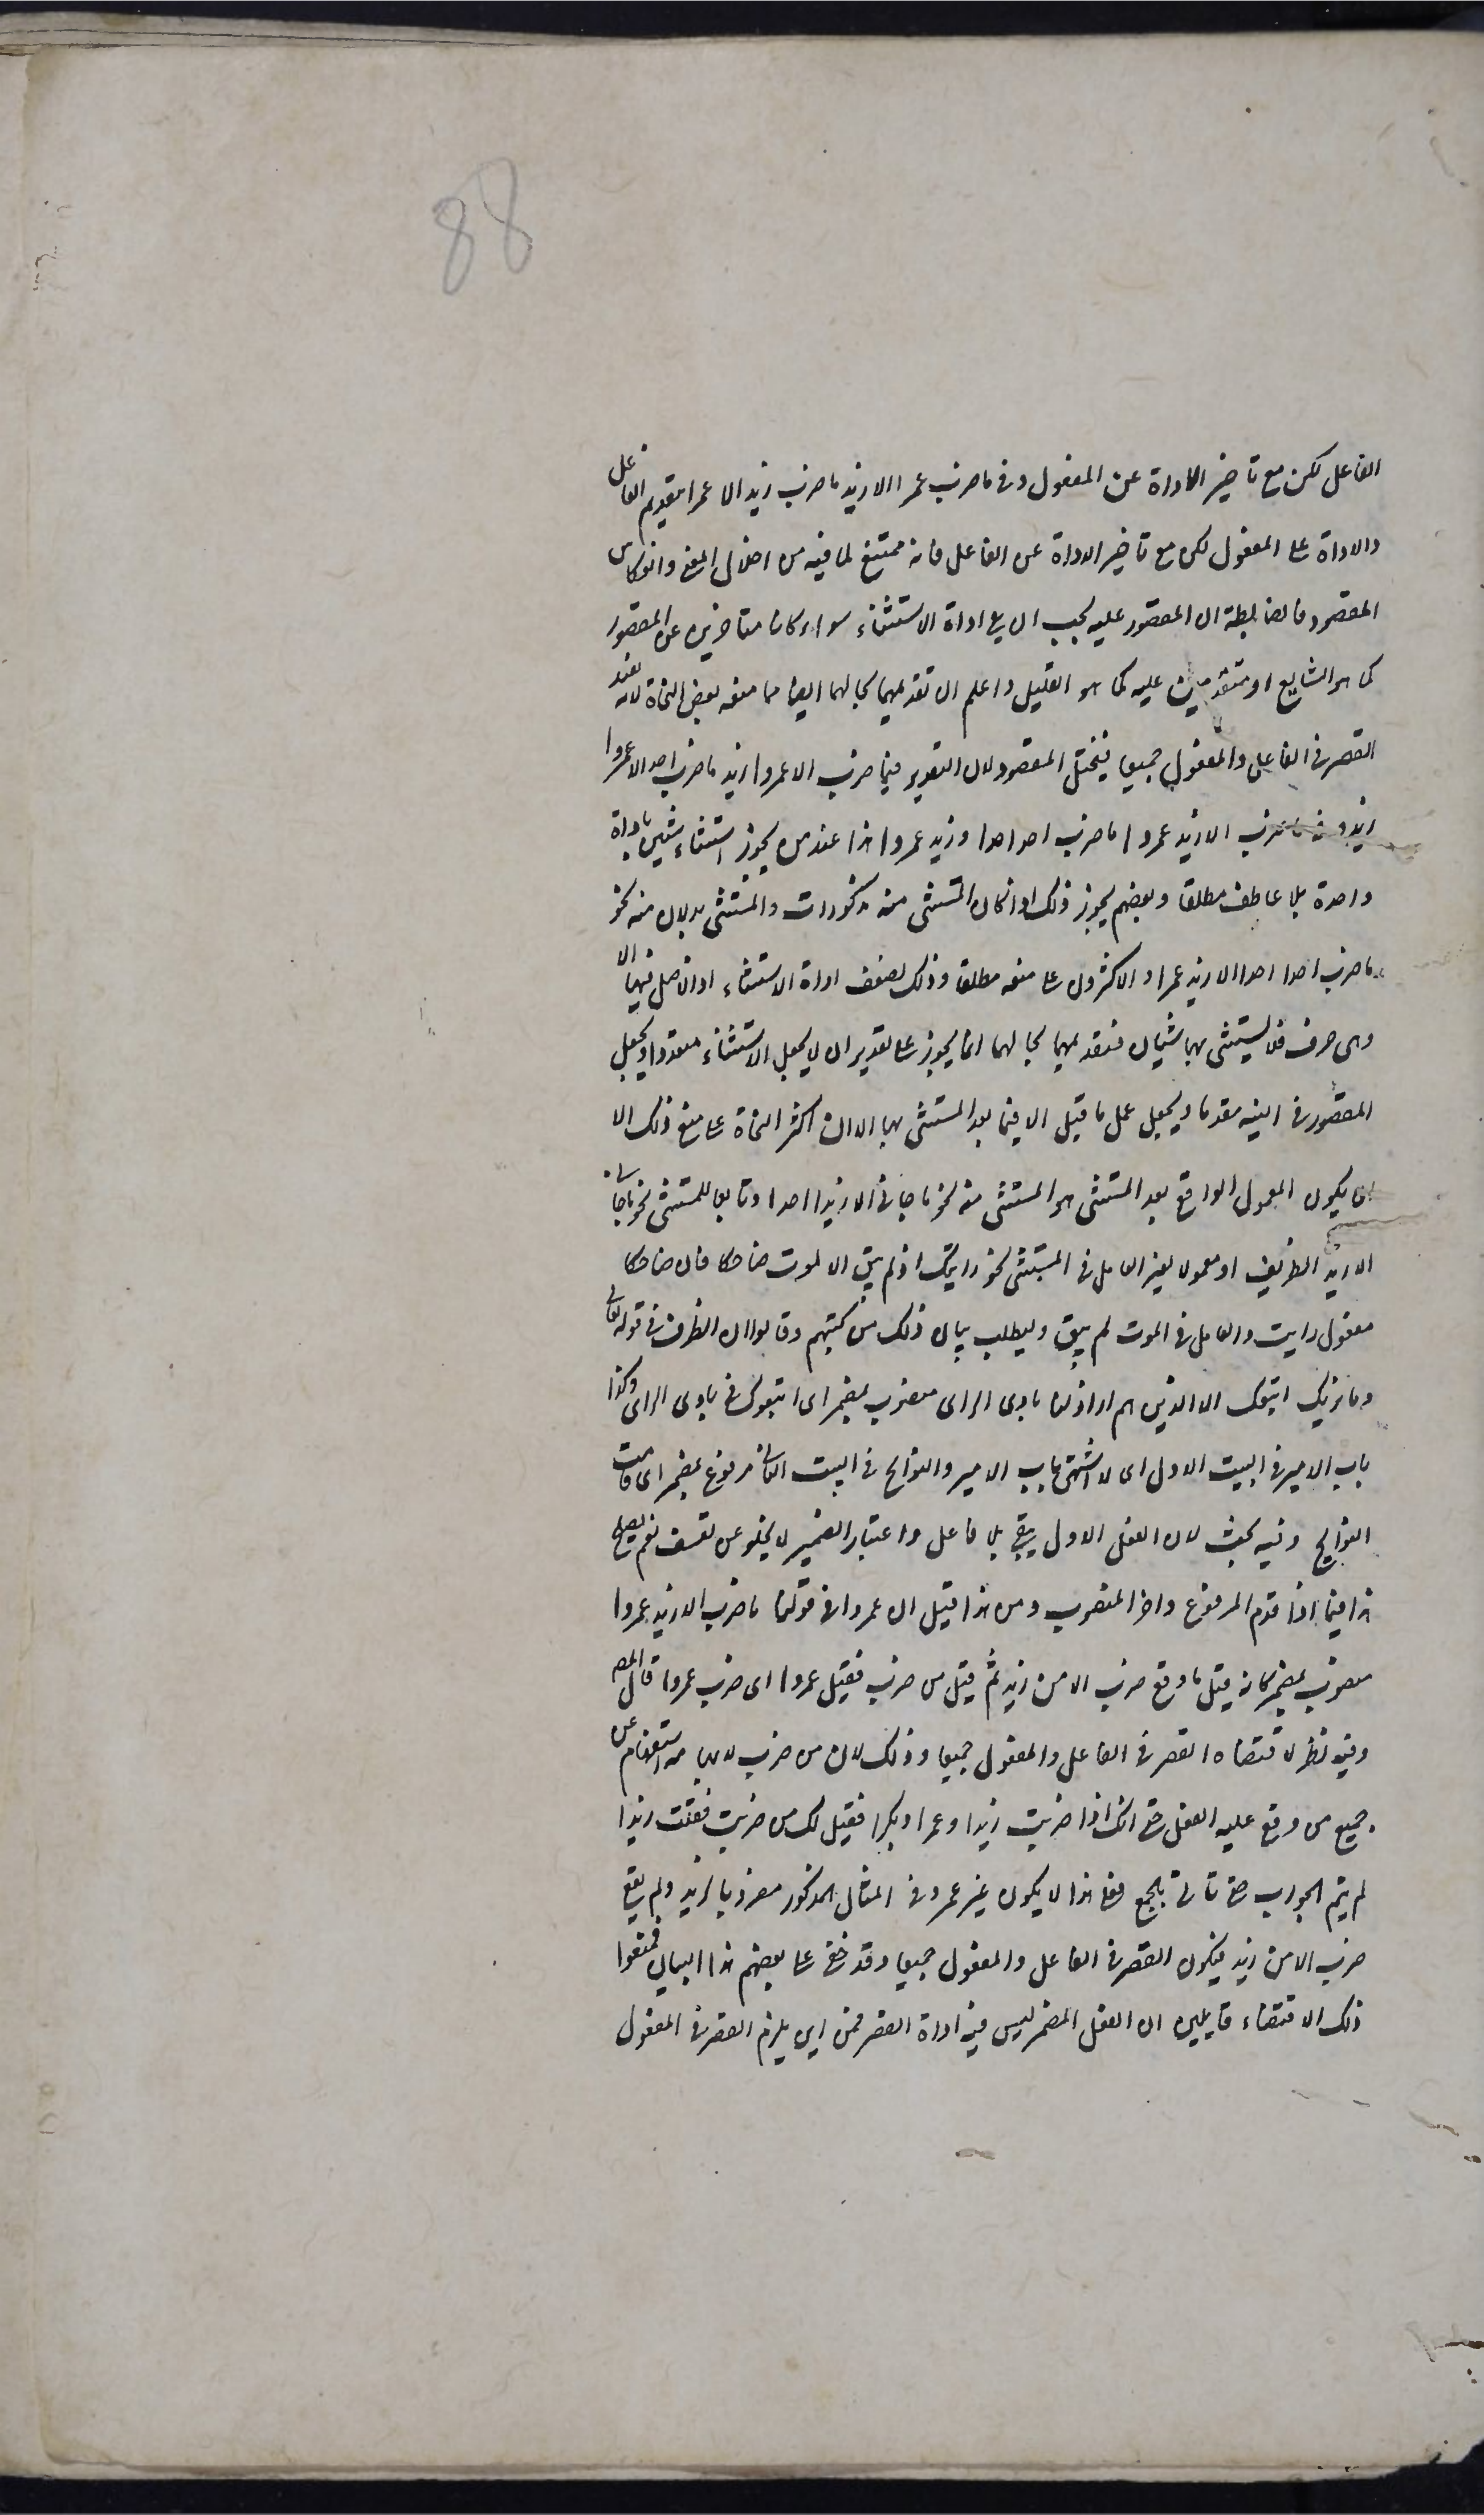 88
الفاعل لكن مع تاخير الاداة عن المفعول وفي ما ضرب عمرا الا زيد ما ضرب زيد الا عمرا بتقديم الفاعل
والاداة على المفعول لكن مع تاخير الاداة عن الفاعل فانه ممتنع لما فيه من اختلال المعنى وانعكاس
المقصود فالضابطة ان المقصور عليه يجب ان يلي اداة الاستثناء سواء كانا متاخرين عن المقصور
كما هو الشايع او متقدمين عليه كما هو القليل واعلم ان تقديمهما بحالهما ايضا مما منعه بعض النحاة لانه يفيد
القصر في الفاعل والمفعول جميعا فيختل المقصود لان التقدير فيما ضرب الا عمروا زيد ما ضرب احد الا عمروا
زيد وفي ما ضرب الا زيد عمروا ما ضرب احد احدا و زيد عمروا هذا عند من يجوز استثناء شيئين باداة
واحدة بلا عاطف مطلقا وبعضهم يجوز ذلك اذا كان المستثنى منه مذكورات والمستثنى بدلان منه نحو
ما ضرب احدا احد الا زيد عمرا والاكثرون على منعه مطلقا وذلك لضعف اداة الاستثناء اذ الاصل فيها الا
وهي حرف فلا يستثنى بها شيئان فتقديمهما بحالهما انما يجوز على تقدير ان لا يجعل الاستثناء متعددا ويجعل
المقصور في النية مقدما ويجعل عمل ما قبل الا فيما بعد المستثنى بها الا ان اكثر النحاة على منع ذلك الا
ان يكون المعمول الواقع بعد المستثنى هو المستثنى منه نحو ما جاءني الا زيدا احد او تابعا للمستثنى نحو ما جاءني
الا زيد الظريف او معمولا لغير العامل في المستثنى نحو رايتك اذ لم يبق الا الموت ضاحكا فان ضاحكا
مفعول رايت والعامل في الموت لم يبق وليطلب بيان ذلك من كتبهم وقالوا ان الظرف في قوله تعالى
وما نريك اتبعك الا الذين هم اراذلنا بادي الراي منصوب بمضمر اي اتبعوك في بادي الراي وكذا
باب الامير في البيت الاول اي لا اشتهي باب الامير والنوائح في البيت الثاني مرفوع بمضمر اي قامت
النوايح وفيه بحث لان الفعل الاول يبقى بلا فاعل واعتبار الضمير لا يخلو عن تعسف نعم يصلح
هذا فيما اذا قدم المرفوع واخر المنصوب ومن هذا قيل ان عمروا في قولنا ما ضرب الا زيد عمروا
منصوب بمضمر كانه قيل ما وقع ضرب الا من زيد ثم قيل من ضرب فقيل عمروا اي ضرب عمروا قال المص
وفيه نظر لاقتضاءه القصر في الفاعل والمفعول جميعا وذلك لان من ضرب لابهامه استفهام عن
جميع من وقع عليه الفعل حتى انك اذا ضربت زيدا وعمرا وبكرا فقيل لك من ضربت فقلت زيدا
لم يتم الجواب حتى تاتي بالجميع فعلى هذا لا يكون غير عمرو في المثال المذكور مضروبا لزيد ولم يقع
ضرب الا من زيد فيكون القصر في الفاعل والمفعول جميعا وقد خفي على بعضهم هذا البيان فمنعوا
ذلك الاقتضاء قايلين ان الفعل المضمر ليس فيه اداة القصر فمن اين يلزم القصر في المفعول